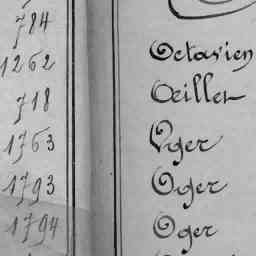 784 Octavien
1262 Œillet
718 Oger
1763 Oger
1793 Oger
1794